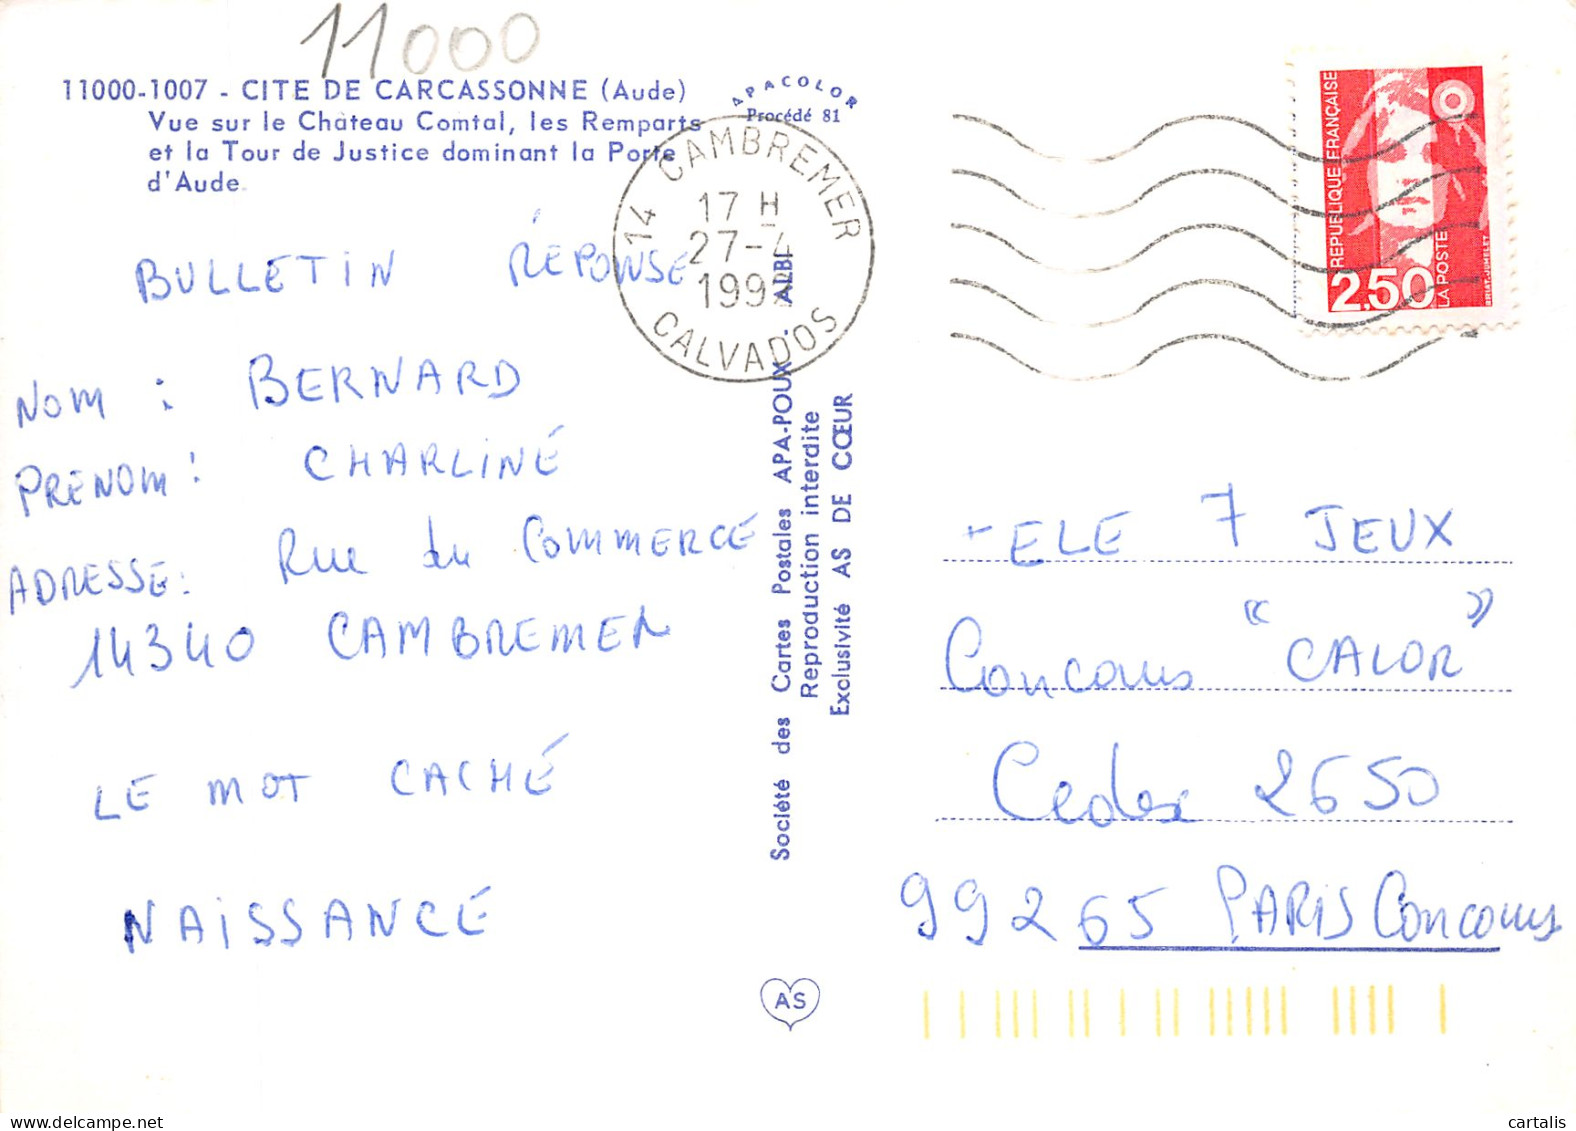 11000
11000-1007 - CITE DE CARCASSONNE (Aude)
Vue sur le Château Comtal, les Remparts
et la Tour de Justice dominant la Porte
d'Aude
APACOLOR
Procédé 81
14 CAMBREMER
17 H
27-4
CALVADOS
REPUBLIQUE FRANÇAISE
2.50
LA POSTE
BULLETIN RÉPONSE
NOM : BERNARD
PRENOM : CHARLINE
ADRESSE : Rue du COMMERCE
14340 CAMBREMER
LE MOT CACHÉ
NAISSANCE
Société des Cartes Postales APA-POUX - ALBI
Reproduction interdite
Exclusivité AS DE CŒUR
AS
TELE 7 JEUX
Concours "CALOR"
Cedex 2650
99265 PARIS Concours
cartalis